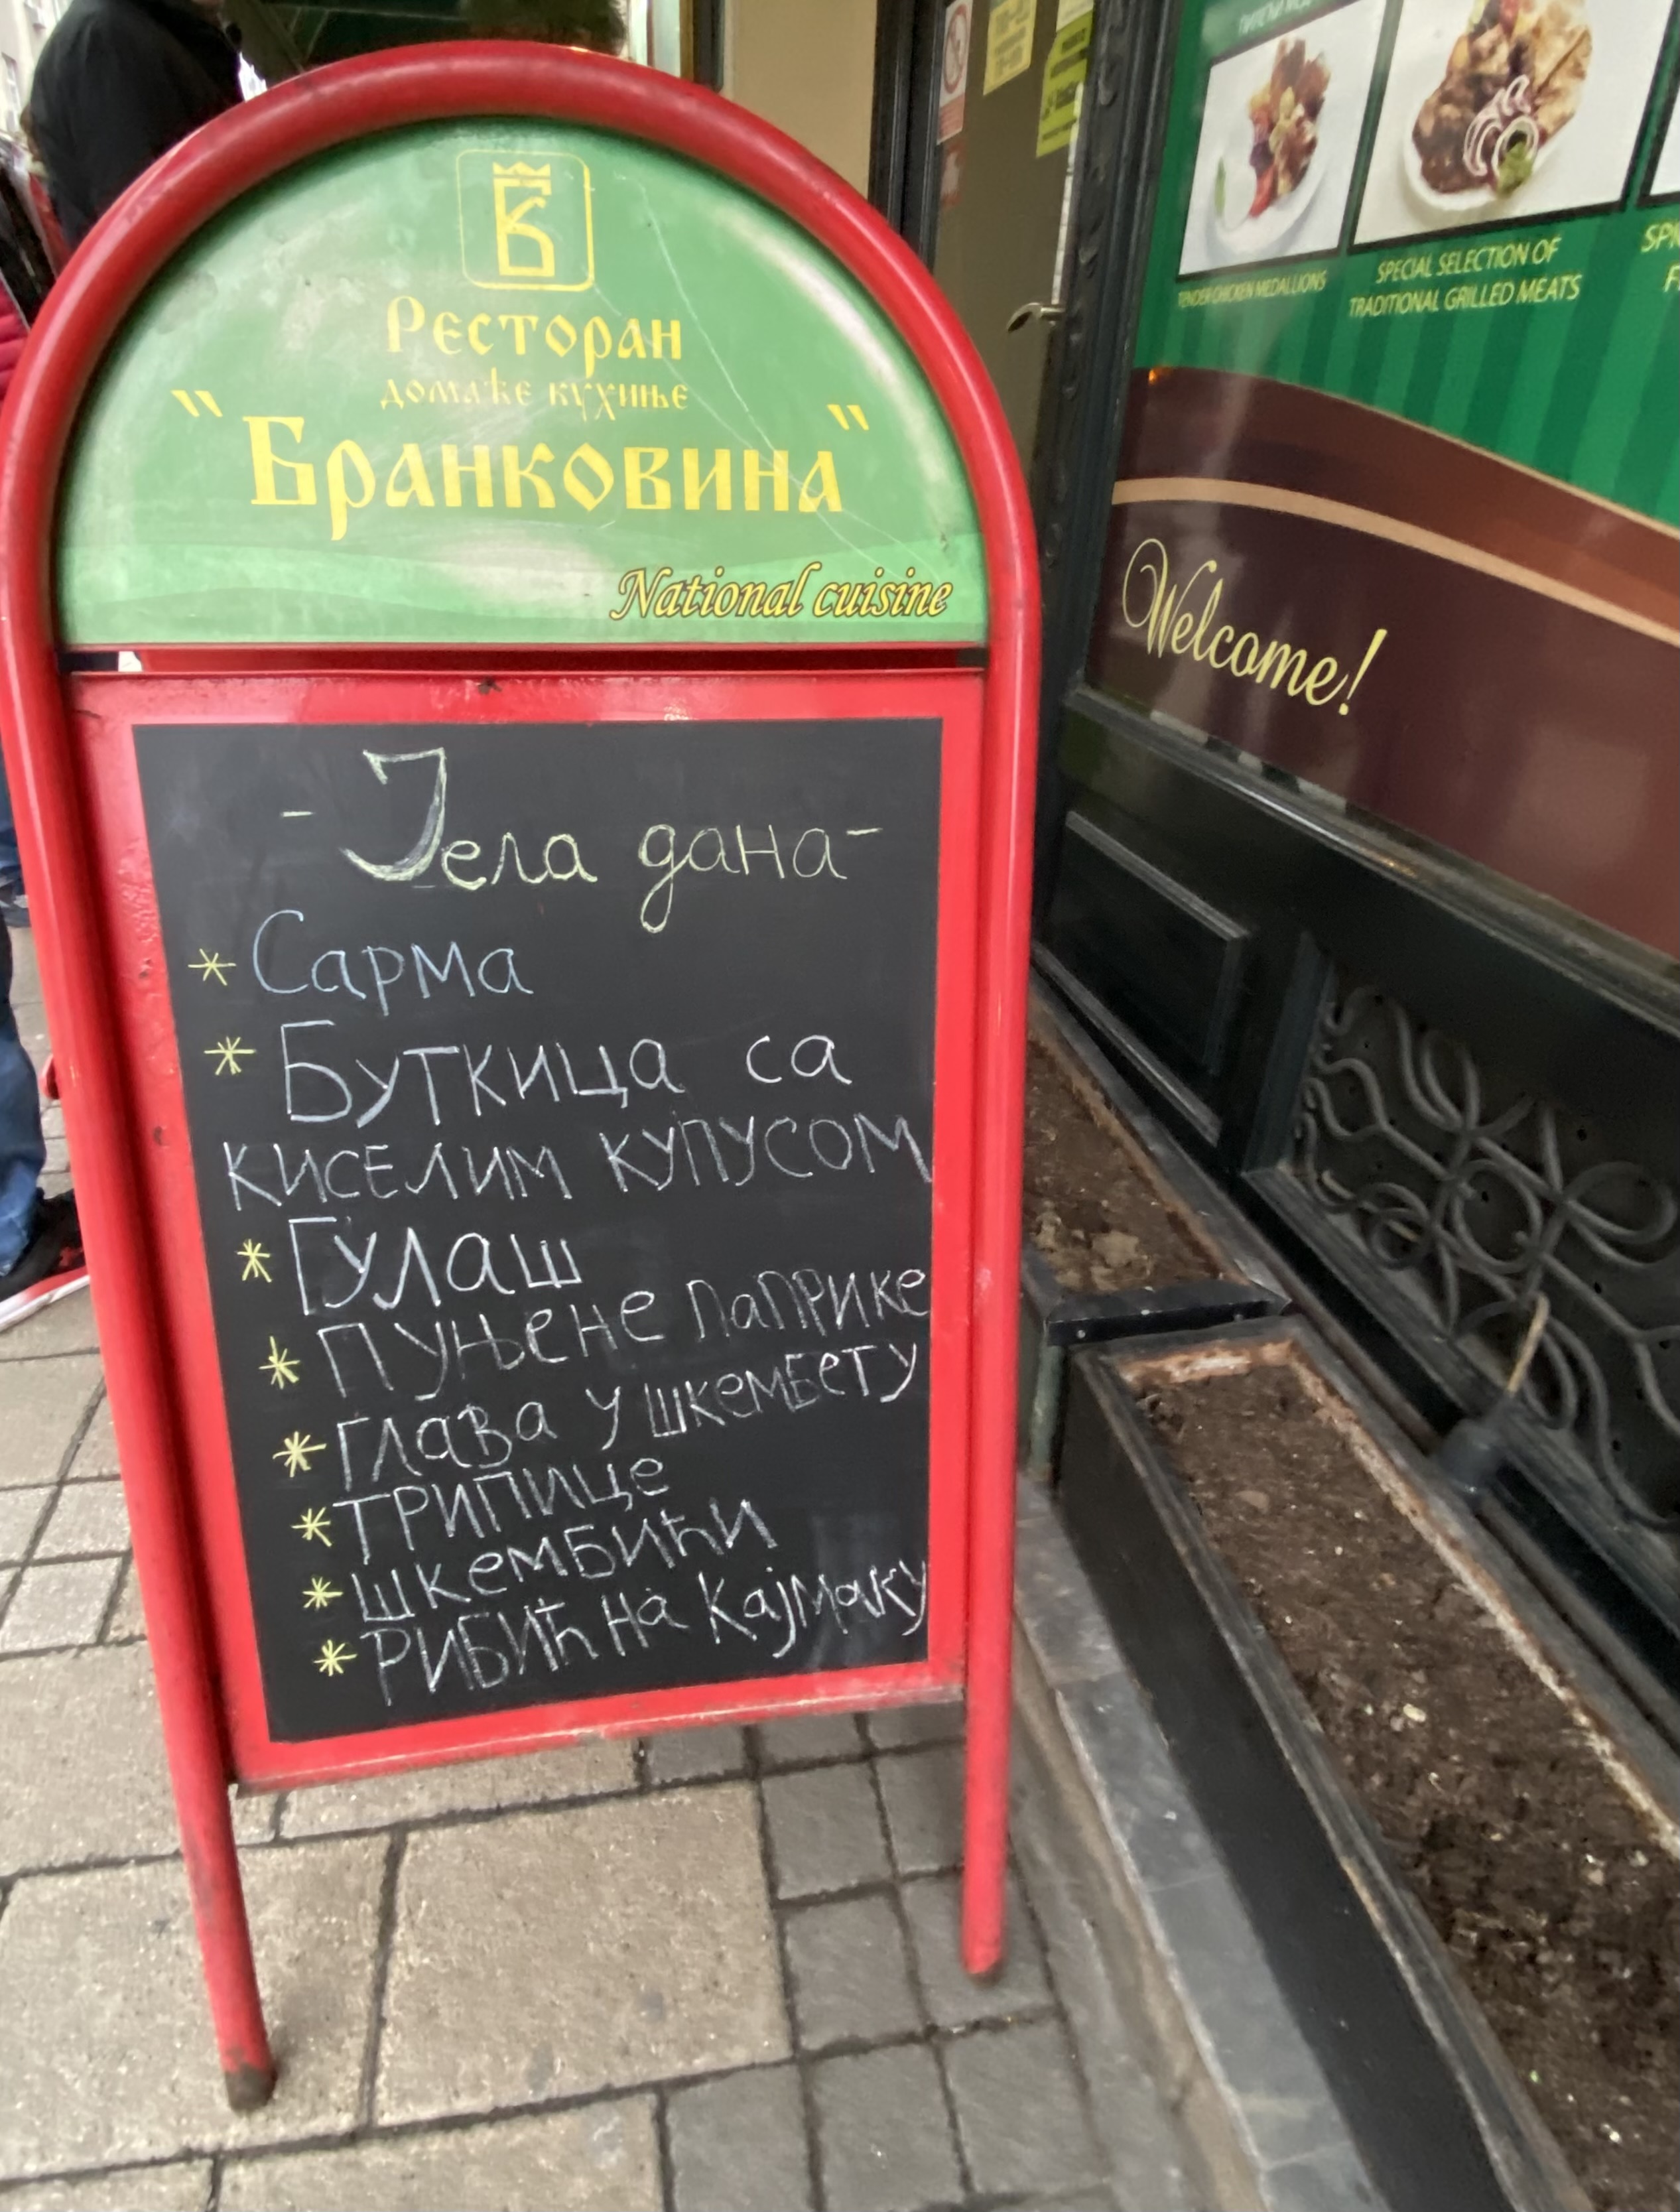 Ресторан
домаће кухиње
"Бранковина"
National cuisine
- Јела дана -
* Сарма
* Буткица са
киселим купусом
* Гулаш
* Пуњене паприке
* Глава у шкембету
* Трипице
* Шкембићи
* Рибић на кајмаку
TENDER CHICKEN MEDALLIONS
SPECIAL SELECTION OF
TRADITIONAL GRILLED MEATS
Welcome!